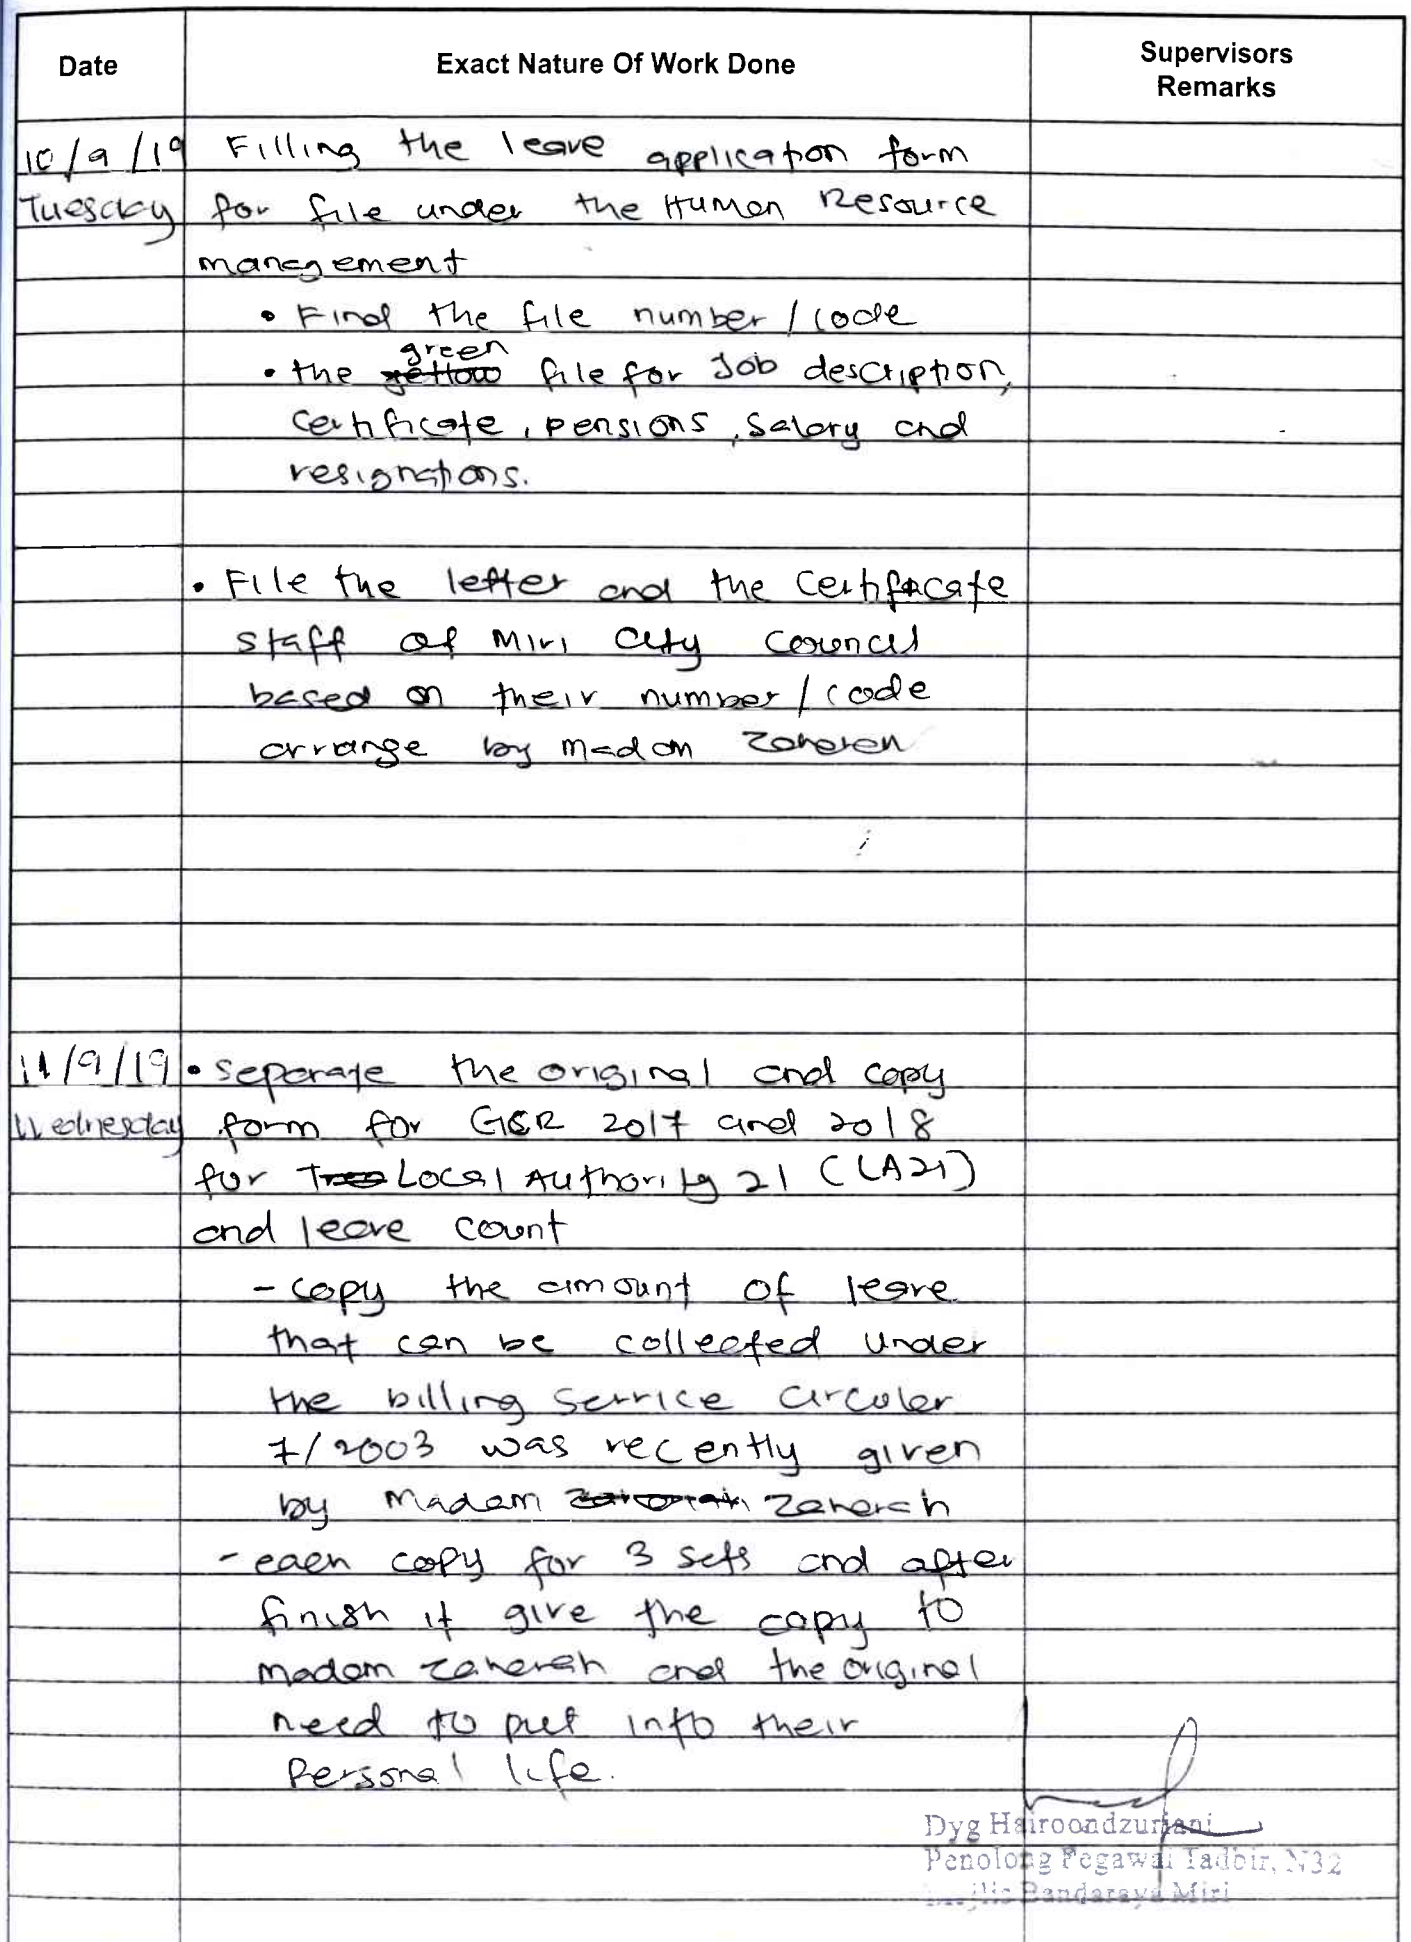 Date Exact Nature Of Work Done Supervisors Remarks
10/9/19 Filling the leave application form
Tuesday for file under the Human Resource
management
• Find the file number / code
green
• the yellow file for Job description,
certificate, pensions, salary and
resignations.
• File the letter and the certificate
staff of Miri City Council
based on their number / code
arrange by madam
11/9/19 • Separate the original and copy
Wednesday form for 2017 and 2018
for Tree Local Authority 21 (LA21)
and leave count
- copy the amount of leave
that can be collected under
the billing service circular
7/2003 was recently given
by Madam Zaherah
- each copy for 3 sets and after
finish it give the copy to
madam Zaherah and the original
need to put into their
Personal life.
Dyg Hairoondzuriani
Penolong Pegawai Tadbir, N32
Majlis Bandaraya Miri